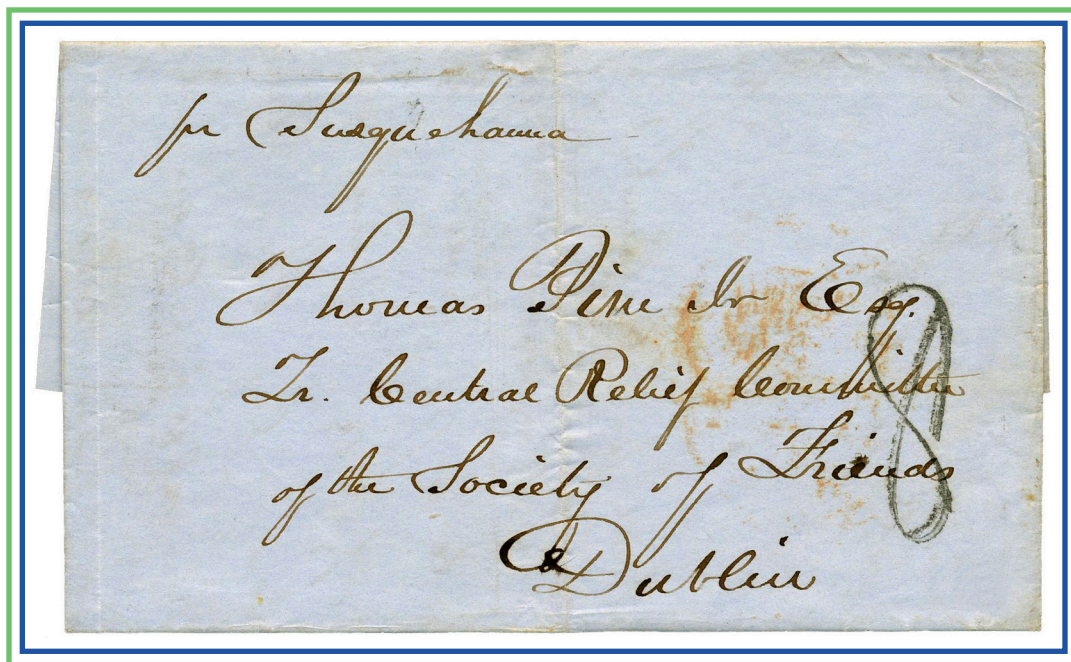 pr Susquehanna
Thomas Pim Jr Esq.
Tr. Central Relief Committee
of the Society of Friends
Dublin
8